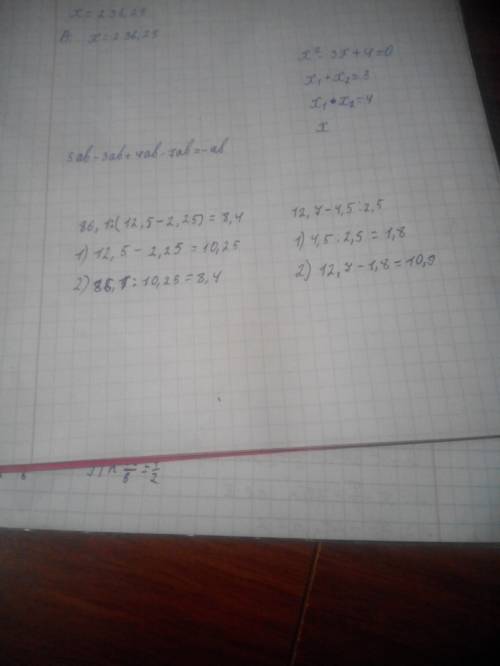 x = 236,25
B: x = 236,25
x² - 3x + 4 = 0
x₁ + x₂ = 3
x₁ • x₂ = 4
x
5ab - 3ab + 4ab - 7ab = -ab
86,1:(12,5 - 2,25) = 8,4
1) 12,5 - 2,25 = 10,25
2) 86,1 : 10,25 = 8,4
12,7 - 4,5 : 2,5
1) 4,5 : 2,5 = 1,8
2) 12,7 - 1,8 = 10,9